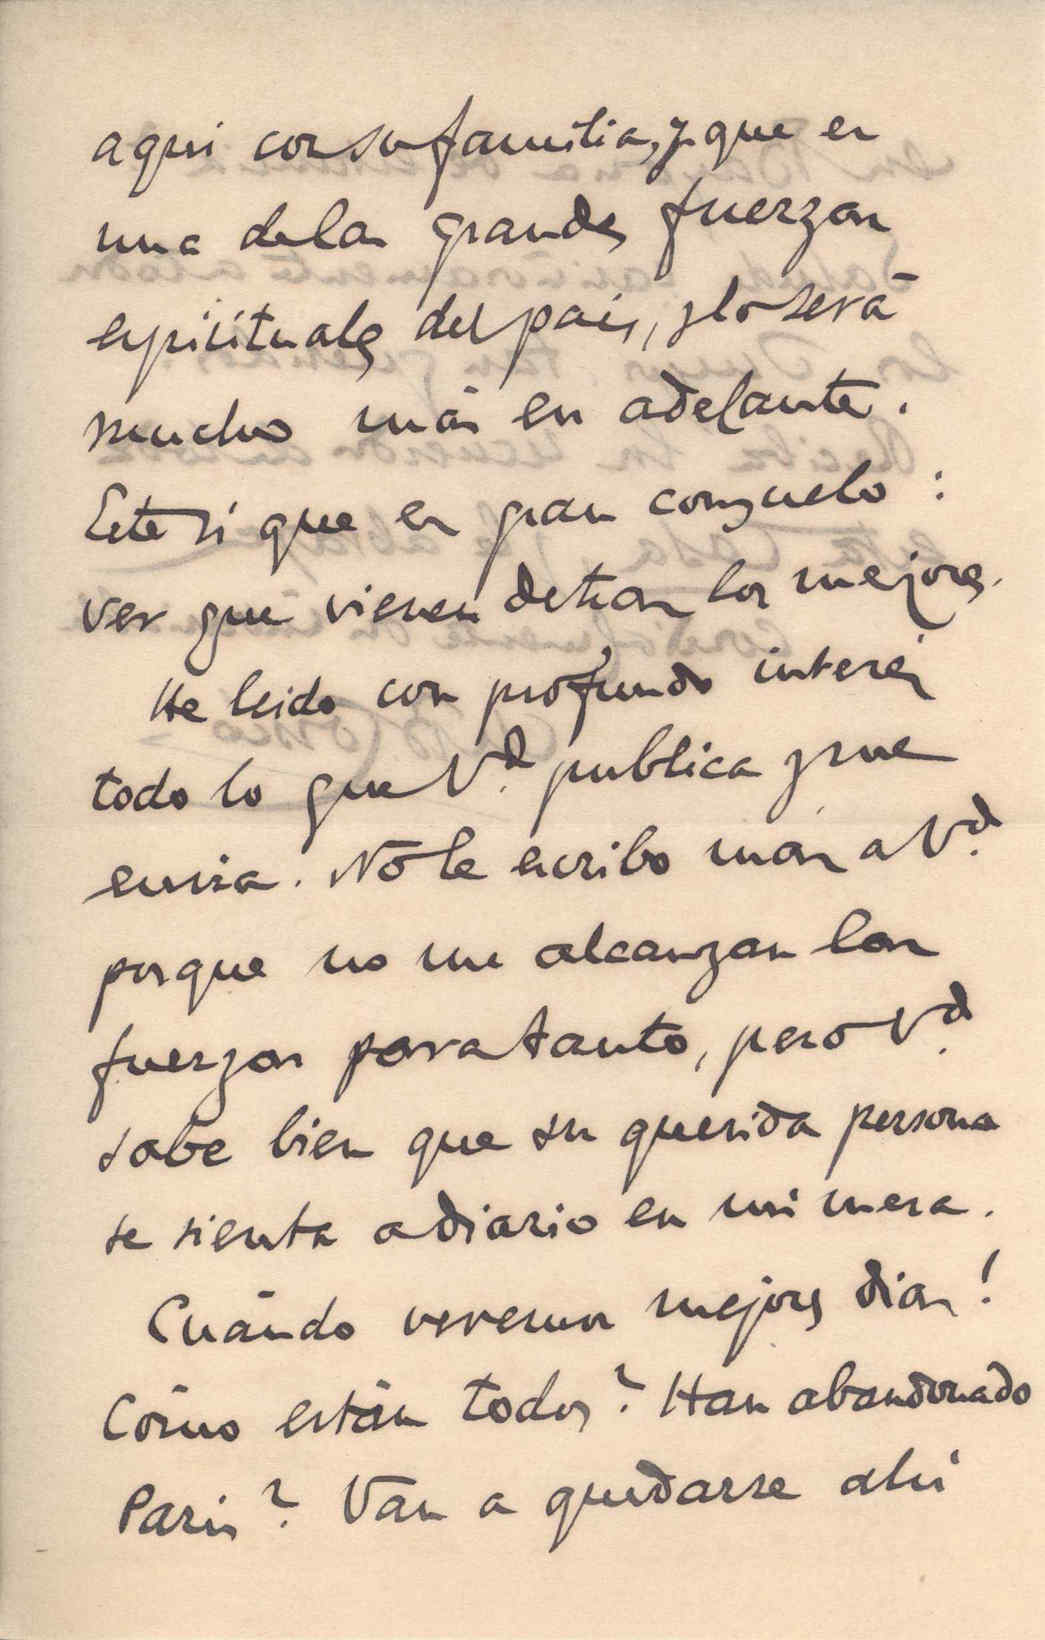 aquí con su familia, y que es
una de las grandes fuerzas
espirituales del país, y lo será
mucho más en adelante.
Este sí que es gran consuelo:
ver que vienen detrás los mejores.
He leido con profundo interés
todo lo que Vd. publica y me
envia. No le escribo más a Vd.
porque no me alcanzan las
fuerzas para tanto, pero Vd.
sabe bien que su querida persona
se sienta a diario en mi mesa.
Cuándo veremos mejores dias!
Cómo están todos? Han abandonado
Paris? Van a quedarse ahí